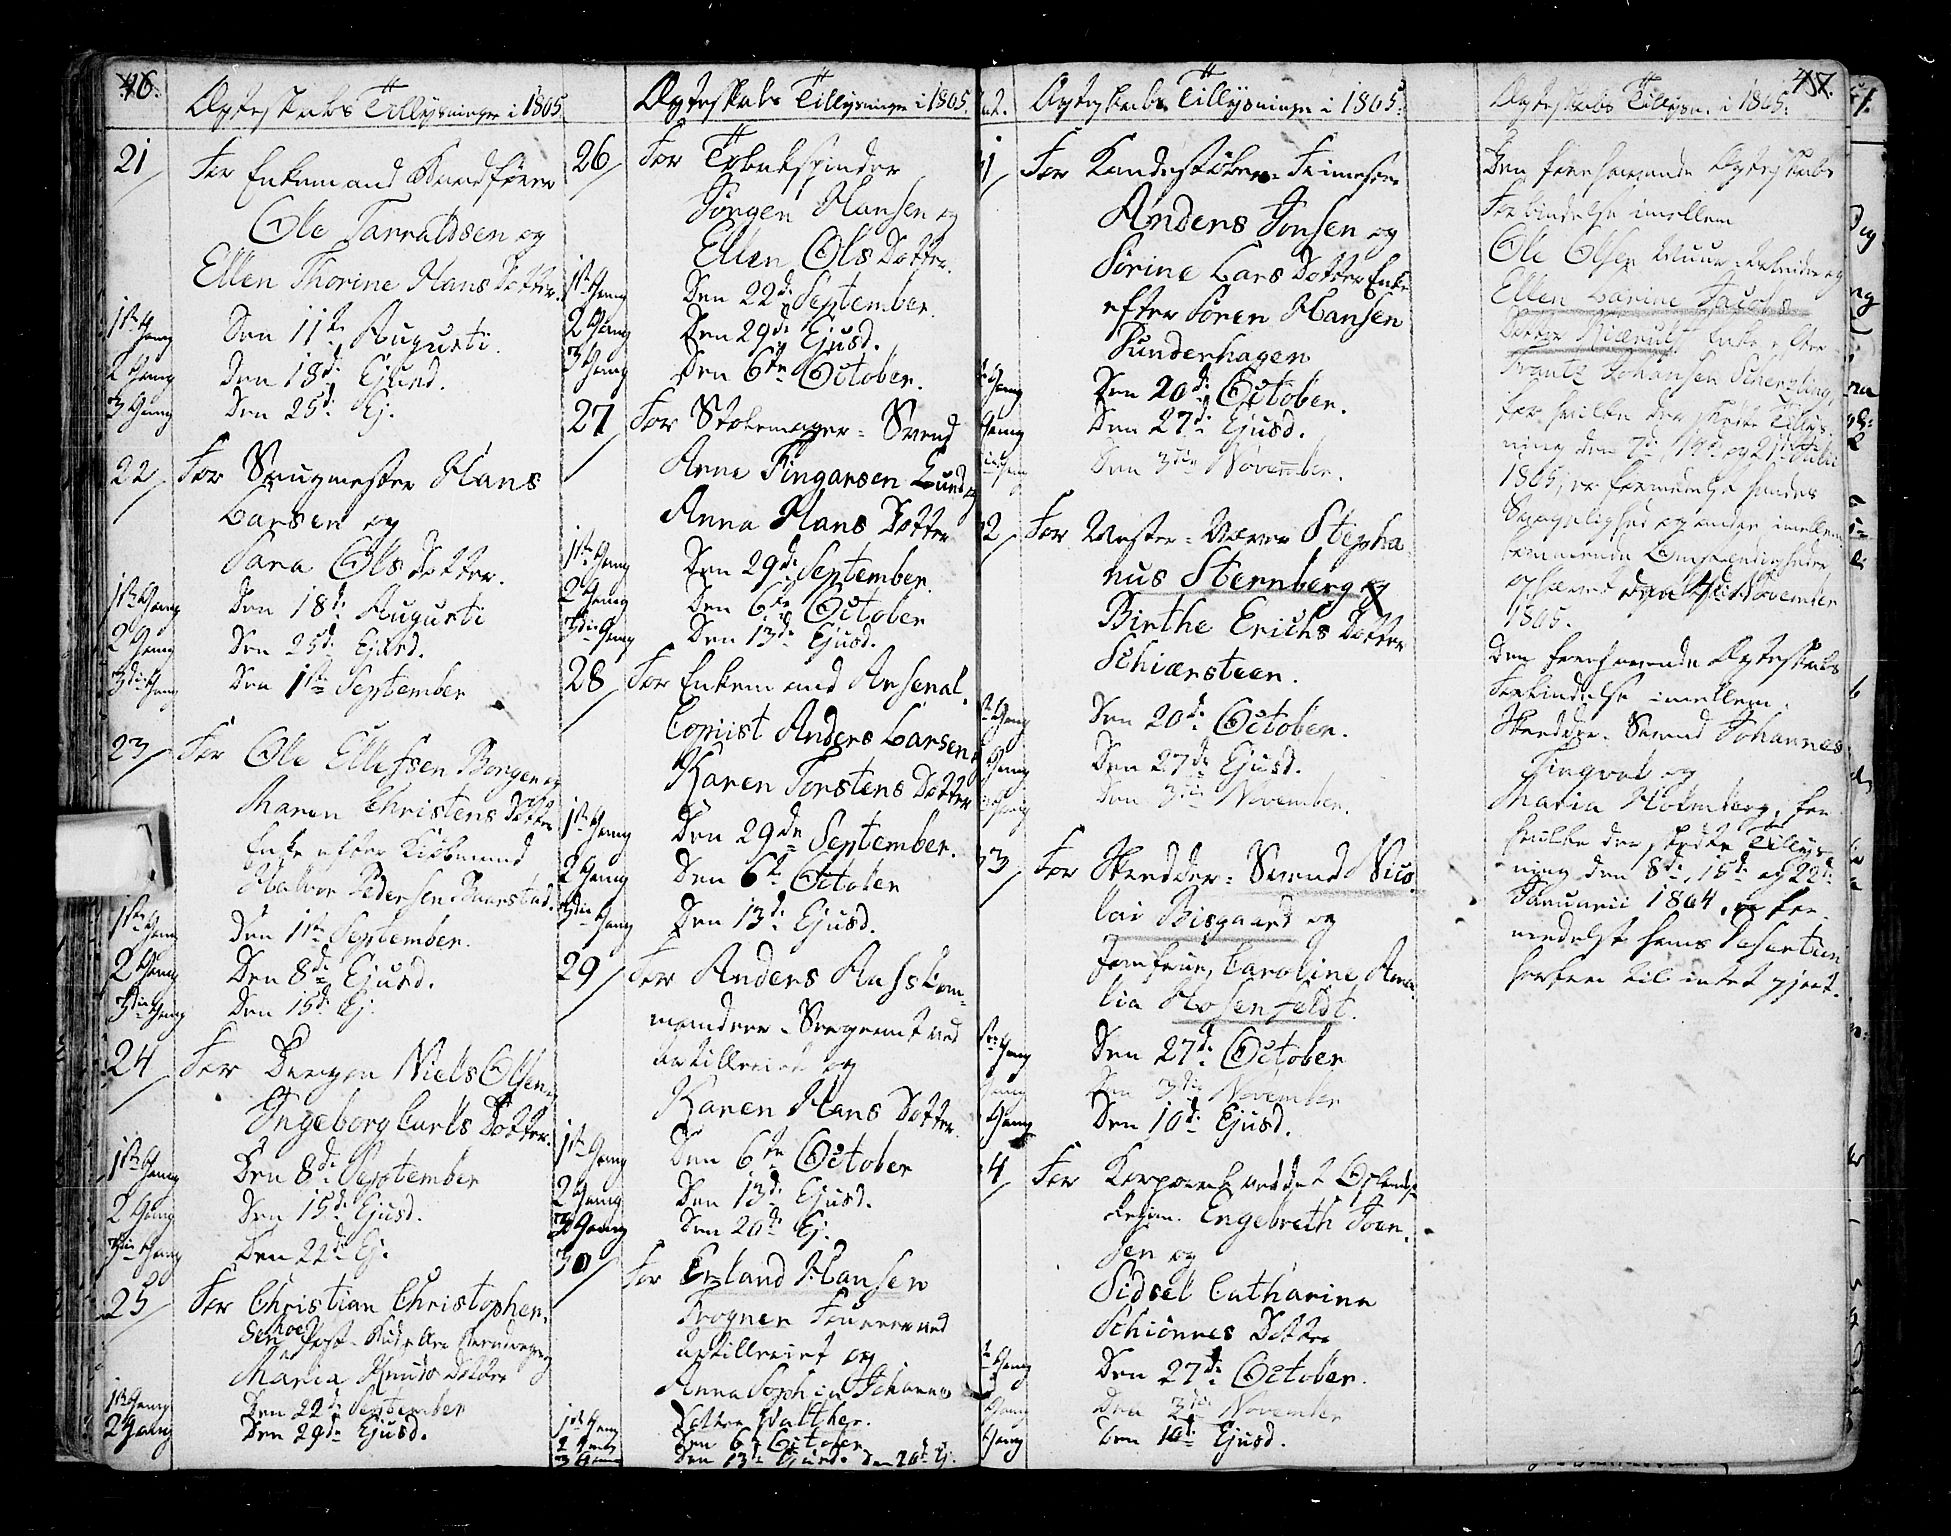 46.
Ægteskabs Tillysninger i 1805.
21 For Enkemand
Ole Tarraldsen og
Ellen Thorine Hans Dotter.
1ste Gang Den 11te Augusti.
2 Gang Den 18de Ejusd.
3 Gang Den 25de Ej.
22 For Saugmester Hans
Larsen og
Sara Ols Dotter.
1ste Gang Den 18de Augusti
2 Gang Den 25de Ejusd.
3die Gang Den 1ste September
23 For Ole Ellefssen Borgen og
Maren Christens Dotter
Enke efter Kiøbmand
Halvor Pedersen
1ste Gang Den 1ste September.
2 Gang Den 8de Ejusd.
3die Gang Den 15de Ej.
24 For Niels Olsen
Ingeborg Carls Dotter.
1ste Gang Den 8de September
2 Gang Den 15de Ejusd.
3die Gang Den 22de Ej.
25 For Christian Christopher-
sen Post
Maria Knuds Dotter
1ste Gang Den 22de September
2 Gang Den 29de Ejusd.
Ægteskabs Tillysninger i 1805.
26 For Tobakspinder
Jørgen Hansen og
Ellen Ols Dotter.
1ste Gang Den 22de September.
2 Gang Den 29de Ejusd.
3 Gang Den 6te October.
27 For Stolemager-Svend
Arne Fingarsen Lund og
Anna Hans Dotter
1ste Gang Den 29de September.
2 Gang Den 6te October
3die Gang Den 13de Ejusd.
28 For Enkemand Arsenal-
Copiist Anders Larsen &
Karen Torstens Dotter
1ste Gang Den 29de September.
2 Gang Den 6te October
3die Gang Den 13de Ejusd.
29 For Anders Aass Com-
mandeer-Sergeant ved
artilleriet og
Karen Hans Dotter.
1ste Gang Den 6te October
2 Gang Den 13de Ejusd.
3 Gang Den 20de Ej.
30 For Erland Hansen
Trogner ved
artilleriet og
Anna Sophia Johannes
Dotter Walther.
1ste Gang Den 6te October
2 Gang
3 Gang Den 13de Ejusd. Den 20de Ej.
Ægteskabs Tillysninger i 1805.
1 For Kandestøber
Anders Jonsen og
Sørine Lars Dotter Enke
efter Søren Hansen
Sunderhagen
Gang Den 20de October.
Gang Den 27de Ejusd.
Gang Den 3die November.
2 For Mester-Væver Stepha
nus Sternberg og
Birthe Erichs Dotter
Schiærsteen.
Gang Den 20de October.
Gang Den 27de Ejusd.
Gang Den 3die November.
3 For Skrædder-Svend Nico
lai Bisgaard og
Jomfrue Caroline Ama-
lia Hosenfeldt.
Gang Den 27de October
Gang Den 3die November
Gang Den 10de Ejusd.
4 For Korporal ved det Oplandske
Regim. Engebreth Joen-
sen og
Sidsel Catharina
Schiønnes Dotter
Gang Den 27de October.
Gang Den 3die November
Gang Den 10de Ejusd.
47.
Ægteskabs Tillysn. i 1805.
Den forehavende Ægteskabs
Forbindelse imellem
Ole Olsen Muur-Arbeider og
Ellen Larine Jacobs
Dotter Kiærulf Enke efter
Frantz Johansen Scherzling,
for hvilke der skedte Tillys-
ning den 7de, 14de og 21de Julii
1805, er formedelst Sandes
og andre imellem-
kommende Omstændigheder
ophævet den 4de November
1805.
Den forehavende Ægteskabs
Forbindelse imellem
Skrædder-Svend Johannes
Tingval og
Maria Holmberg, for
hvilke der skedte Tillys-
ning den 8de, 15de og 22de
Januarii 1804, er for-
medelst hans Desertion
herfra til intet gjort.